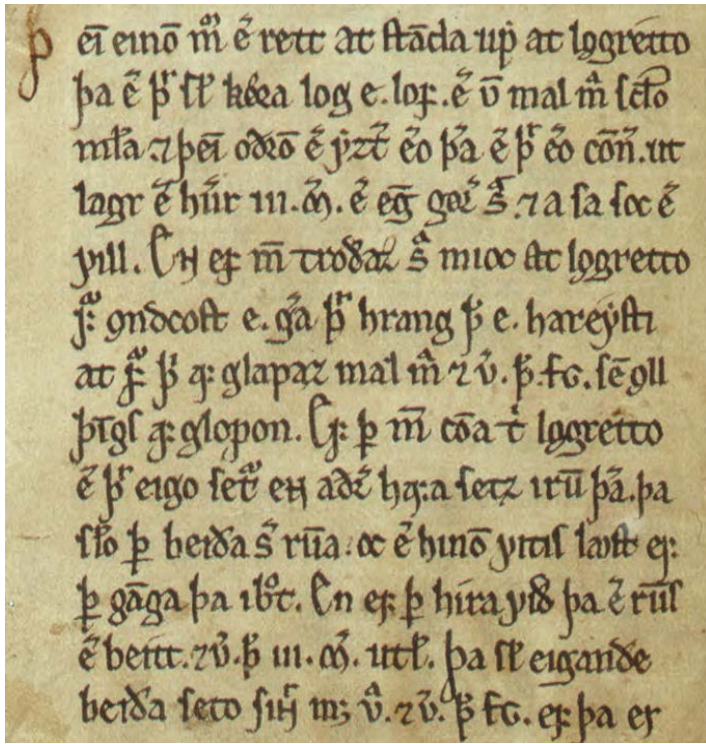 Þ eī einō m̄ ẽ rett at stāda up at lꝍgretto
þa ẽ þr̄ sl̄ ryðia log e. lof. ẽ ū mal m̄ scło
mła ⁊ þeī oðrō ẽ ẏzt̃ ẽo þ̃a ẽ þr̄ ẽo cōñ. ut
lagr ẽ hũr iii. m̃. ẽ eḡ gor̃ s̃. ⁊ a sa soc ẽ
vill. En ef m̄ troðaz s̃ mioc at lꝍgretto
f̃ ꝍndcost e. g̃a þr̄ hrang þ̄ e. hareẏsti
at f̃ þ̃ af glapaz mal m̃ ⁊ v̄. þ̄. fG. sē ꝍll
þīgs afglopon. Ef þ̄ m̄ cōa t̃ lꝍgretto
ẽ þr̄ eigo set̃ eɴ aðr̃ hafa setz irū þ̃a. þa
sło þ̄ beiða s̃ rūa. oc ẽ hinō vitis lꜹst ef
þ̄ gāga þa ibͦt. En ef þ̄ hira við þa ẽ rūs
ẽ beitt. ⁊ v̄. þ̄ iii. m̃. utł. þa sl̄ eigande
beiða seto siɴ̄ mꝫ v̄. ⁊ v̄. þ̄ fG. ef þa er